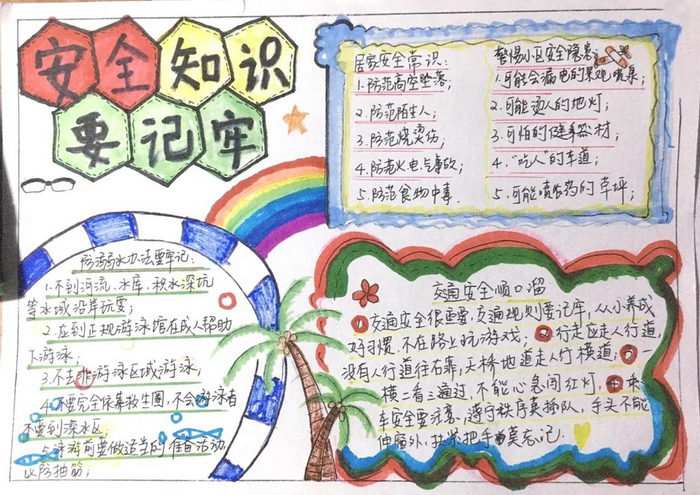 安全知识
要记牢
居家安全常识:
1.防范高空坠落;
2.防范陌生人;
3.防范烧烫伤
4.防范火电气事故;
5.防范食物中毒.
警惕小区安全隐患:
1.可能会漏电的景观喷泉;
2.可能烫人的地灯;
3.可怕的健身器材;
4."吃人"的车道;
5.可能喷农药的草坪;
防溺水办法要牢记:
1.不到河流、水库、积水深坑
等水域沿岸玩耍;
2.应到正规游泳馆在成人帮助
下游泳;
3.不去非游泳区域游泳;
4.不要完全依靠救生圈,不会游泳者
不要到深水区;
5.游泳前要做适当的准备活动
以防抽筋;
交通安全顺口溜
交通安全很重要,交通规则要记牢,从小养成
好习惯,不在路上玩游戏;行走应走人行道,
没有人行道往右靠,天桥地道走人行横道,一
横二看三通过,不能心急闯红灯,乘
车安全要注意,遵守秩序莫挤队,手头不能
伸窗外,扶紧把手莫忘记.